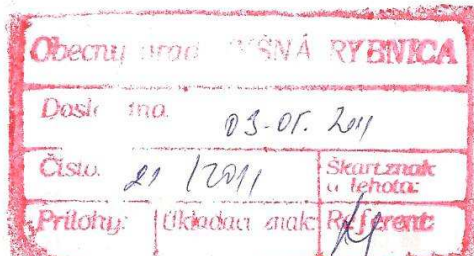 Obecný úrad VYŠNÁ RYBNICA
Došlo dňa:
03-05. 2011
Číslo: 21 /2011 Škart.znak
a lehota:
Prílohy: Ukladací znak: Referent: